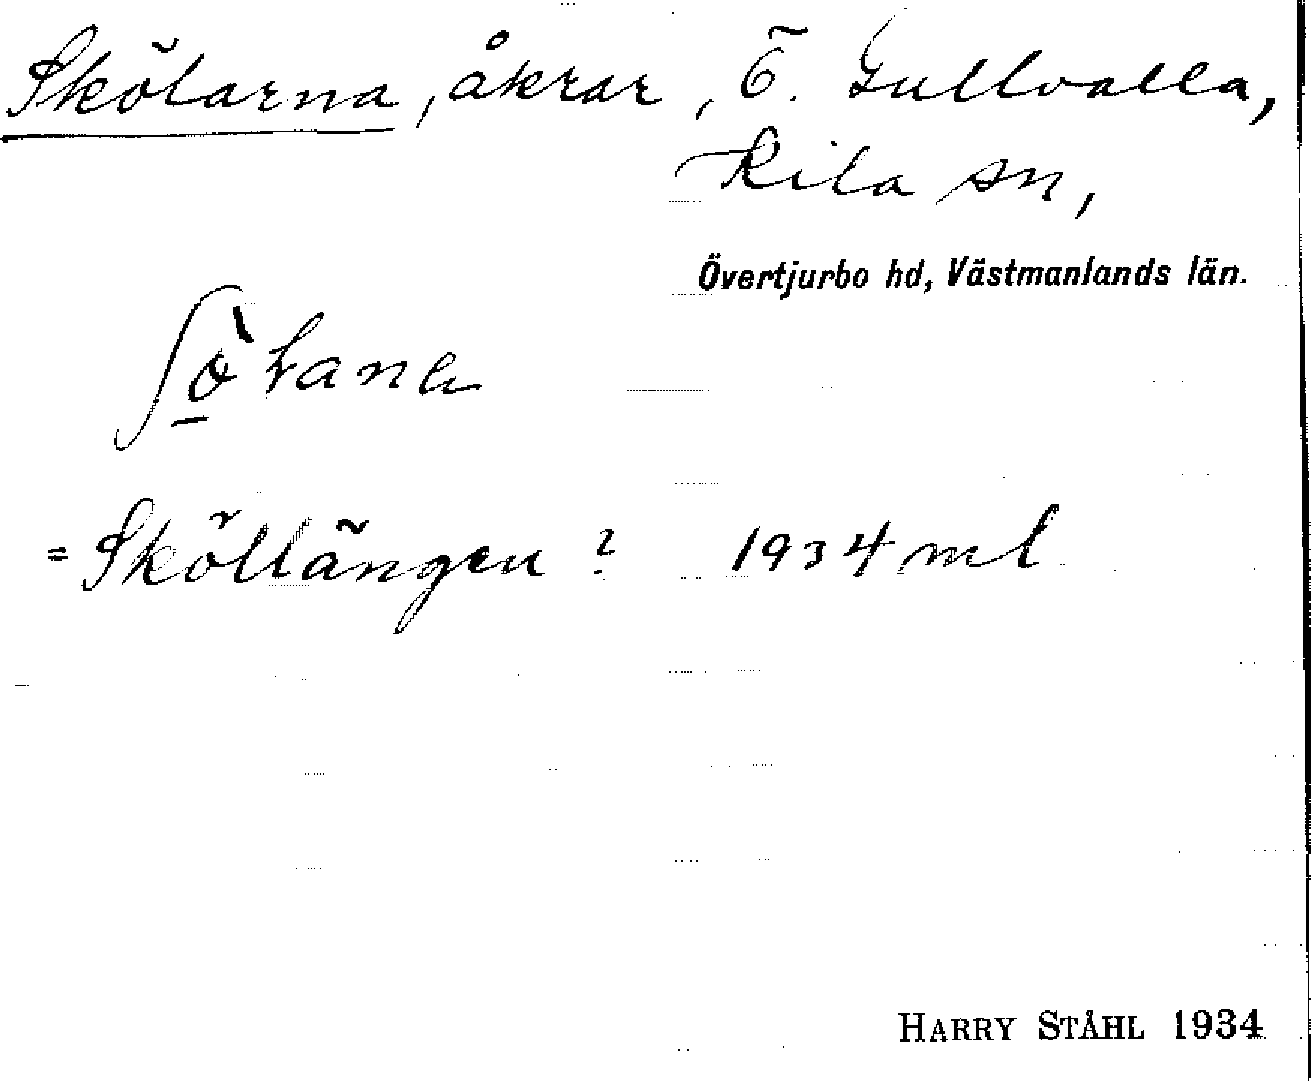 Skölarna, åkrar, Ö. Gullvalla,
Kila sn,
Övertjurbo hd, Västmanlands län.
= Sköllängen? 1934 ml
HARRY STÅHL 1934